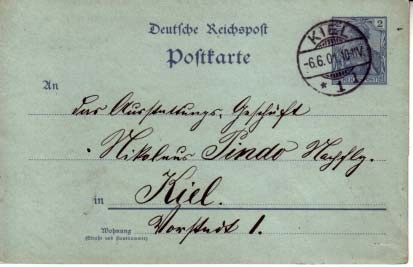 Deutsche Reichspost
Postkarte
KIEL
-6.6.01.10-11V.
* 1
2
An
das Ausstattungs-Geschäft
Nikolaus Pindo Nachflg.
in Kiel.
Wohnung
(Straße und Hausnummer)
Vorstadt 1.